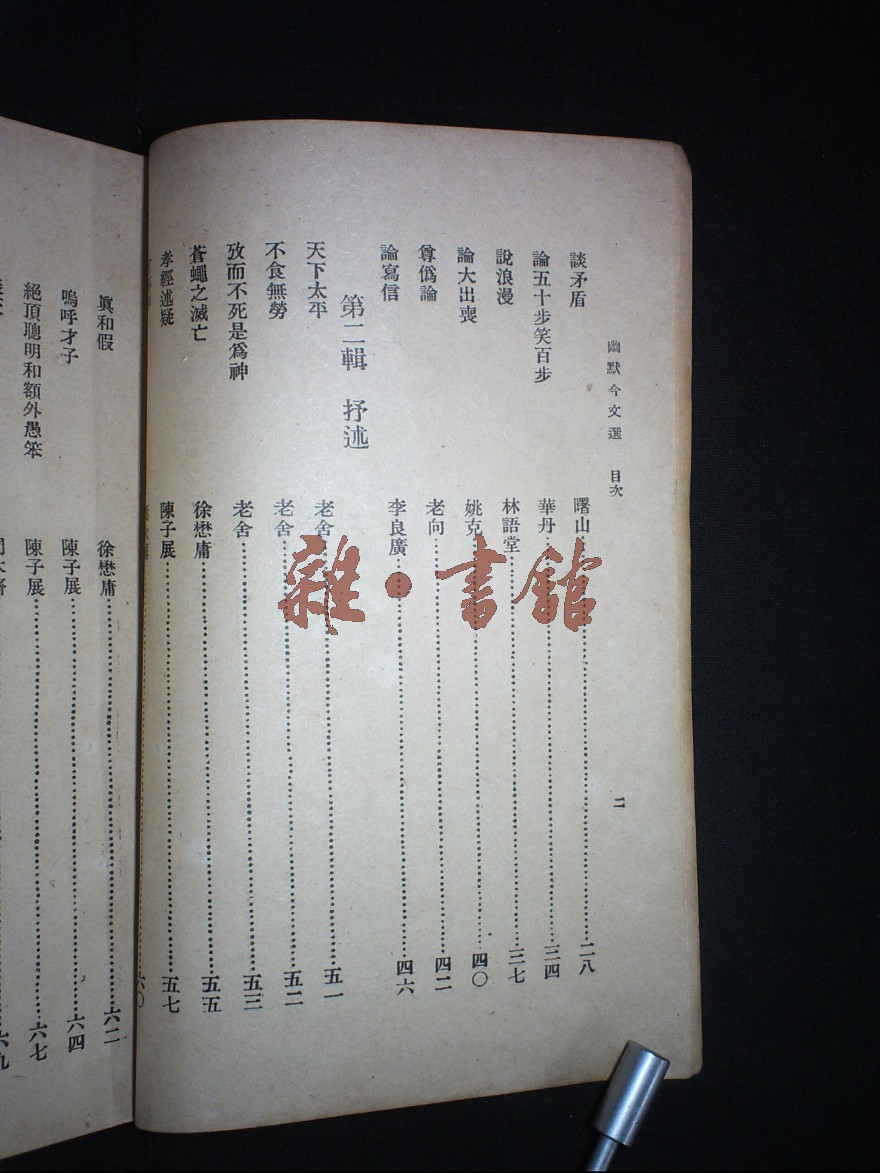 幽默今文選 目次
二
談矛盾 曙山 二八
論五十步笑百步 華丹 三四
說浪漫 林語堂 三七
論大出喪 姚克 四〇
尊僞論 老向 四二
論寫信 李良廣 四六
第二輯 抒述
天下太平 老舍 五一
不食無勞 老舍 五二
攷而不死是爲神 老舍 五三
蒼蠅之滅亡 徐懋庸 五五
孝經述疑 陳子展 五七
六〇
眞和假 徐懋庸 六二
嗚呼才子 陳子展 六四
絕頂聰明和額外愚笨 陳子展 六七
六九
雜·書館